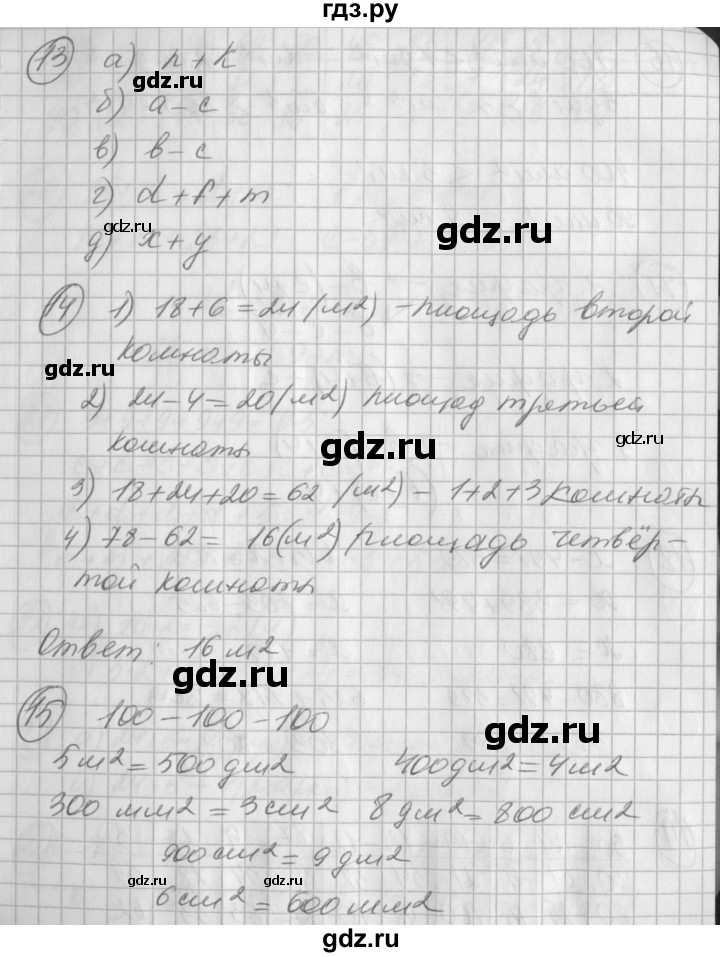 гдз.ру
13 а) n + k
gdz.ru
б) a - c
в) b - c
г) d + f + m
gdz.ru
gdz.ru
д) x + y
14 1) 18 + 6 = 24 (м2) - площадь второй
gdz.ru
комнаты
2) 24 - 4 = 20 (м2) площад третьей
gdz.ru
gdz.ru
комнаты
3) 18 + 24 + 20 = 62 (м2) - 1 + 2 + 3 комнаты
gdz.ru
4) 78 - 62 = 16 (м2) площадь четвёр-
той комнаты
Ответ: 16 м2
gdz.ru
15 100 - 100 - 100
gdz.ru
5 м2 = 500 дм2 400 дм2 = 4 м2
300 мм2 = 3 см2 8 дм2 = 800 см2
900 см2 = 9 дм2
gdz.ru gdz.ru
6 см2 = 600 мм2
gdz.ru